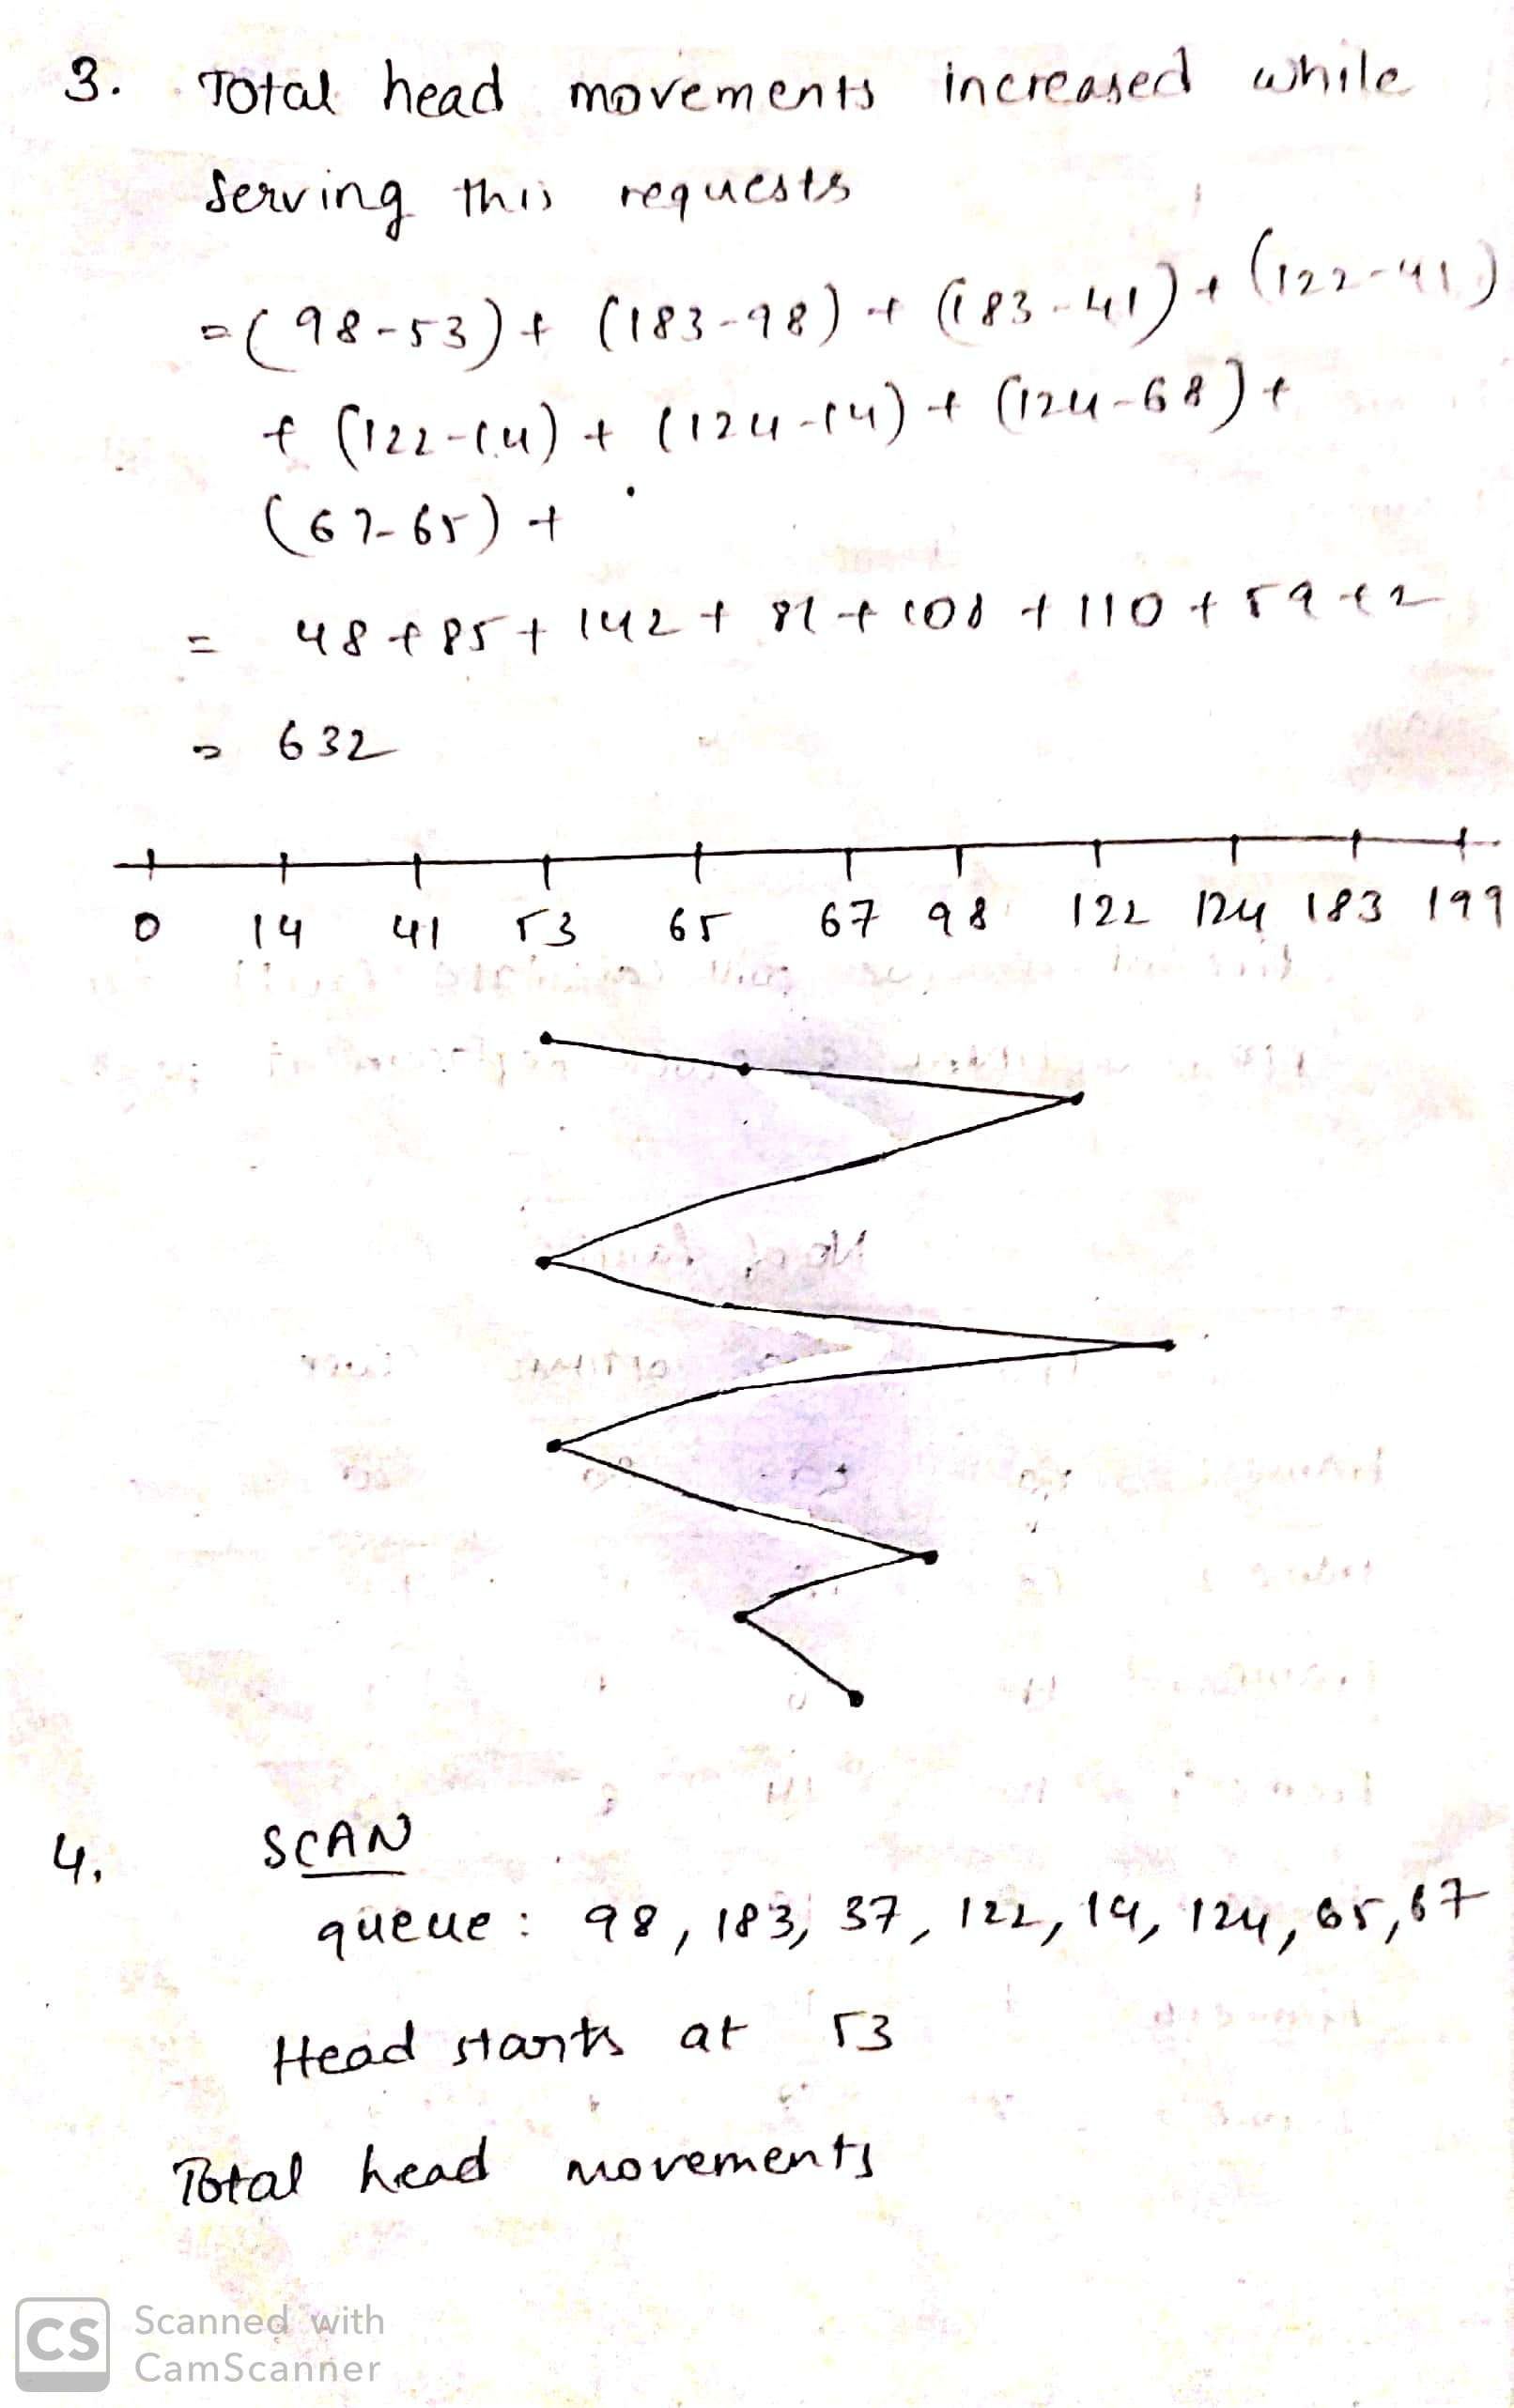 3. Total head movements increased while
serving this requests
=(98-53)+ (183-98) + (183-41)+ (122-41)
+ (122-14) + (124-14) + (124-68)+
(67-65) +
= 48+85+ 142 + 81 + 108 + 110 + 59 +2
= 632
0 14 41 53 65 67 98 122 124 183 199
4. SCAN
queue: 98, 183, 37, 122, 14, 124, 65, 67
Head starts at 53
Total head movements
CS Scanned with
CamScanner